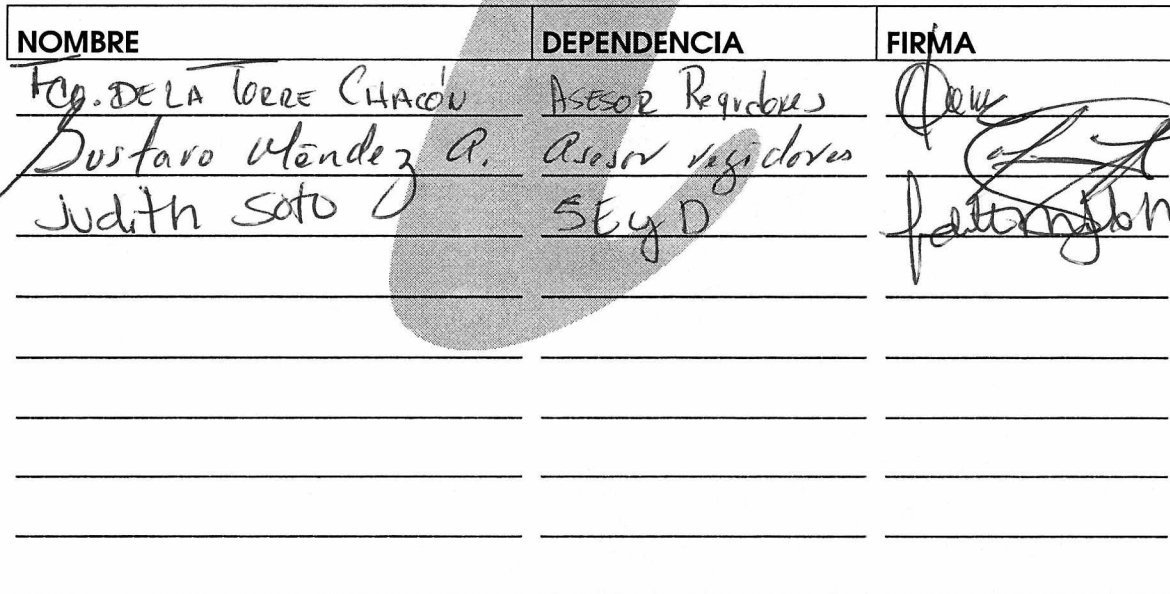 NOMBRE DEPENDENCIA FIRMA
Fco. DE LA TORRE CHACÓN ASESOR Regidores
Gustavo Méndez A. Asesor regidores
Judith Soto SEyD